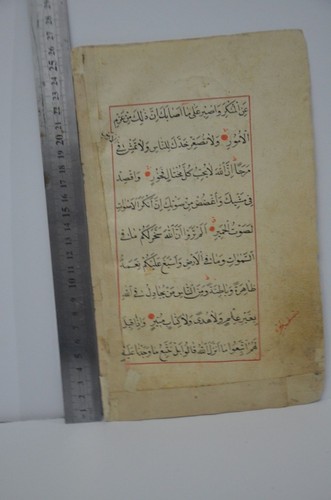 عَنِ الْمُنْكَرِ وَاصْبِرْ عَلٰى مَا اَصَابَكَ اِنَّ ذٰلِكَ مِنْ عَزْمِ
الْاُمُورِ وَلَا تُصَعِّرْ خَدَّكَ لِلنَّاسِ وَلَا تَمْشِ فِى
الْاَرْضِ
مَرَحًا اِنَّ اللّٰهَ لَا يُحِبُّ كُلَّ مُخْتَالٍ فَخُورٍ وَاقْصِدْ
فِى مَشْيِكَ وَاغْضُضْ مِنْ صَوْتِكَ اِنَّ اَنْكَرَ الْاَصْوَاتِ
لَصَوْتُ الْحَمِيرِ اَلَمْ تَرَوْا اَنَّ اللّٰهَ سَخَّرَ لَكُمْ مَا فِى
السَّمٰوَاتِ وَمَا فِى الْاَرْضِ وَاَسْبَغَ عَلَيْكُمْ نِعَمَهُ
ظَاهِرَةً وَبَاطِنَةً وَمِنَ النَّاسِ مَنْ يُجَادِلُ فِى اللّٰهِ
بِغَيْرِ عِلْمٍ وَلَا هُدًى وَلَا كِتَابٍ مُنِيرٍ وَاِذَا قِيلَ
لَهُمُ اتَّبِعُوا مَا اَنْزَلَ اللّٰهُ قَالُوا بَلْ نَتَّبِعُ مَا وَجَدْنَا عَلَيْهِ
1 2 3 4 5 6 7 8 9 10 11 12 13 14 15 16 17 18 19 20 21 22 23 24 25 26 27 28